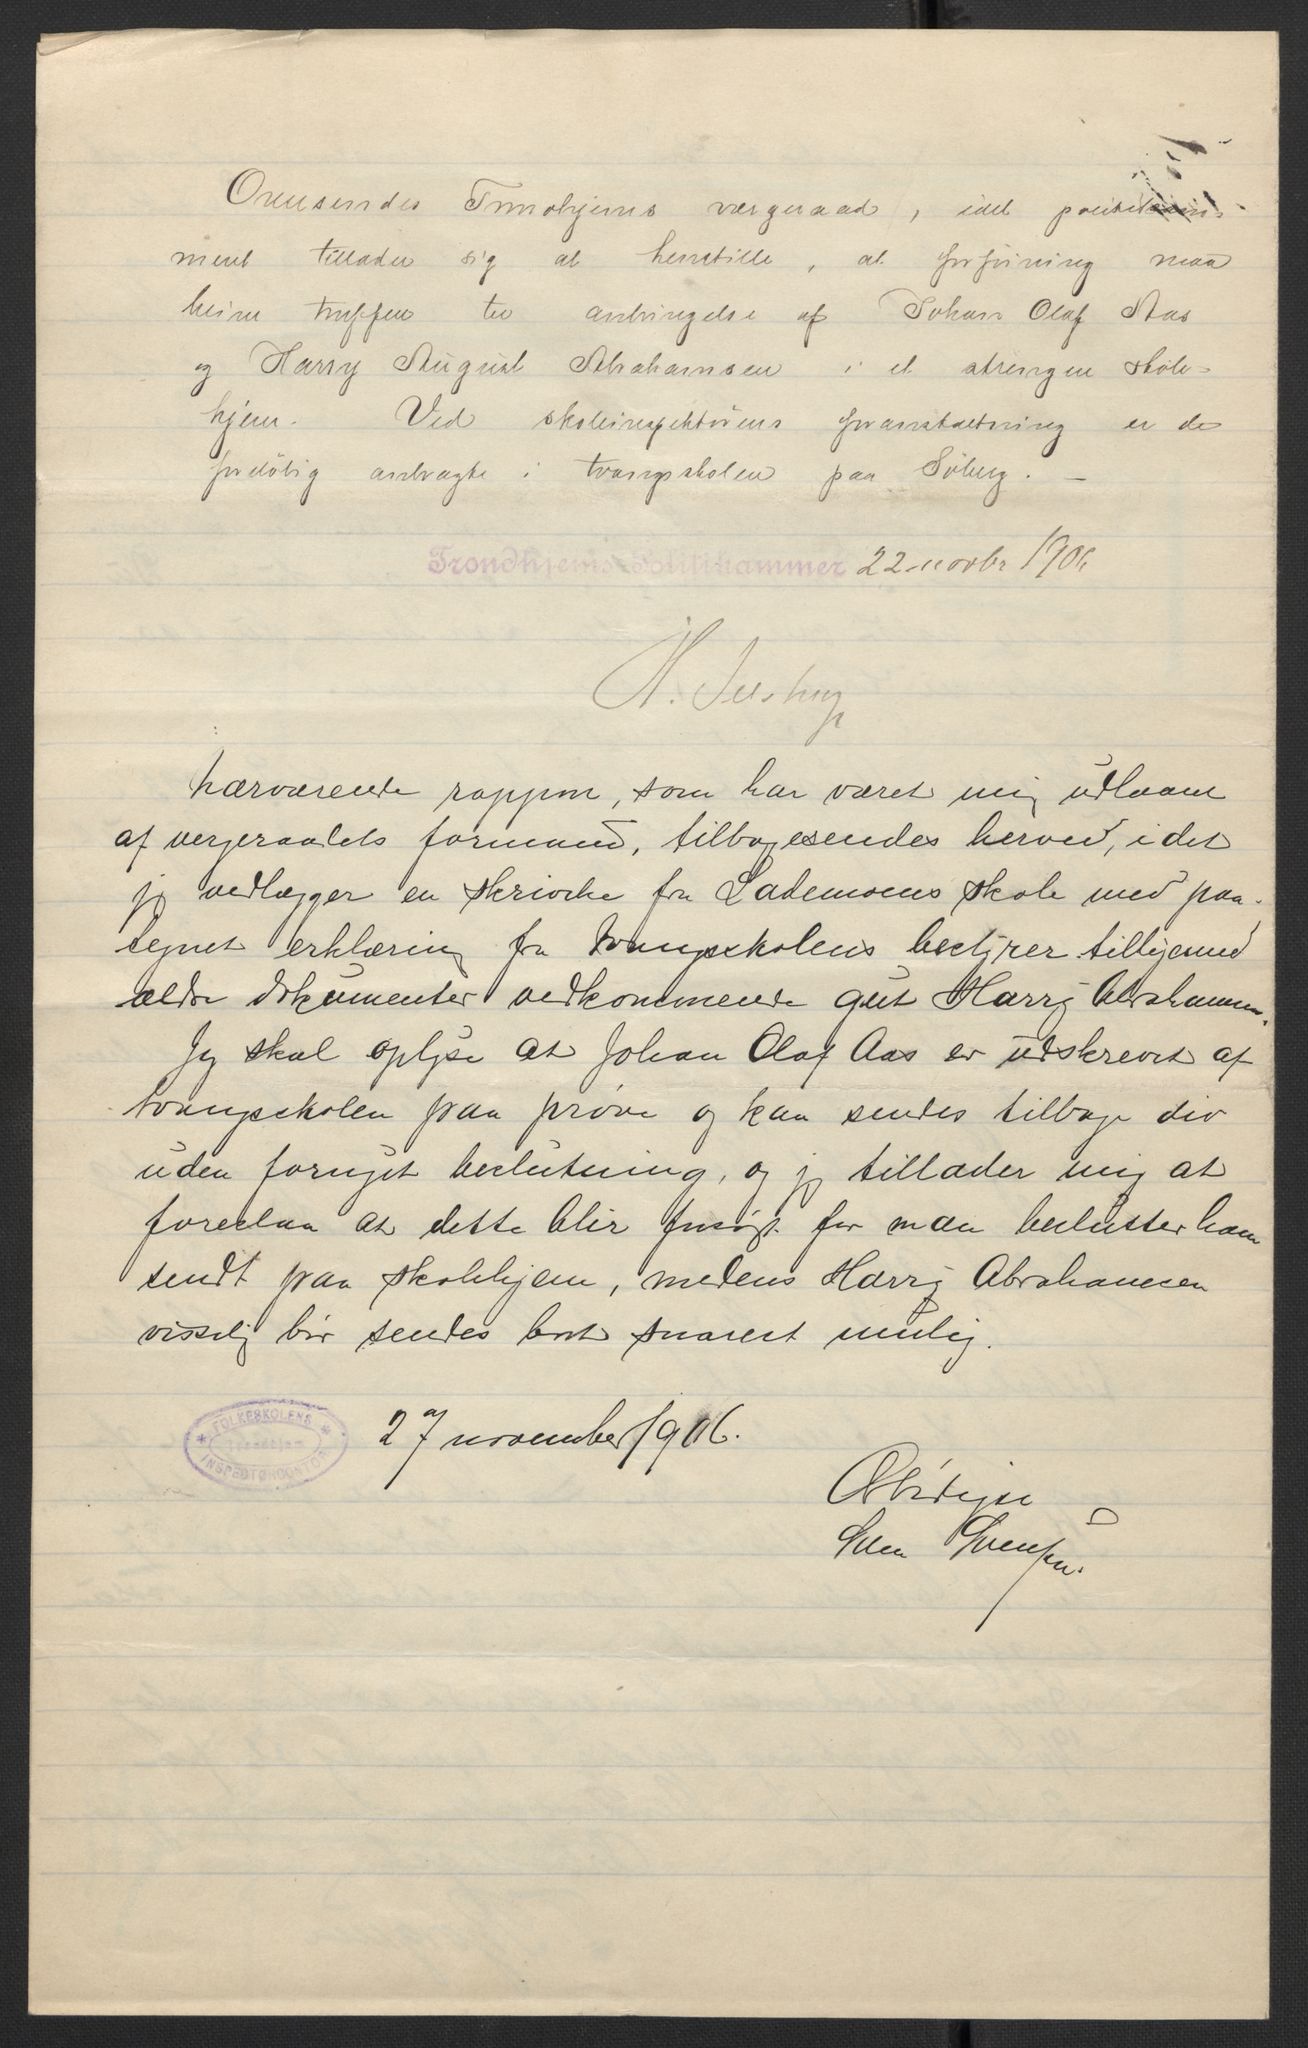 Oversendes Trondhjems værgeraad, idet politikam-
meret tillader sig at henstille, at forføining maa
bli truffen til anbringelse af Johan Olaf Aas
og Harry August Abrahamsen i et strengere skole-
hjem. Ved skoleinspektørens foranstaltning er de
foreløbig anbragte i tvangsskolen paa Søberg. —
Trondhjems Politikammer 22 novbr 1906
H.
Nærværende rapport, som har været mig udlaant
af vergeraadets formand, tilbagesendes herved, idet
jeg vedlægger en skrivelse fra Lademoens skole med paa-
tegnet erklæring fra tvangsskolens bestyrer tilligemed
ældre dokumenter vedkommende gut Harry Abrahamsen.
Jeg skal oplyse at Johan Olaf Aas er udskrevet af
tvangsskolen paa prøve og kan sendes tilbage did
uden fornyet beslutning, og jeg tillader mig at
foreslaa at dette blir forsøgt før man beslutter ham
sendt paa skolehjem, medens Harry Abrahamsen
visselig bør sendes bort snarest mulig.
FOLKESKOLENS
Trondhjem
INSPECTØRCONTOR
27 november 1906.
Ærbødigst
Sven Svensen.